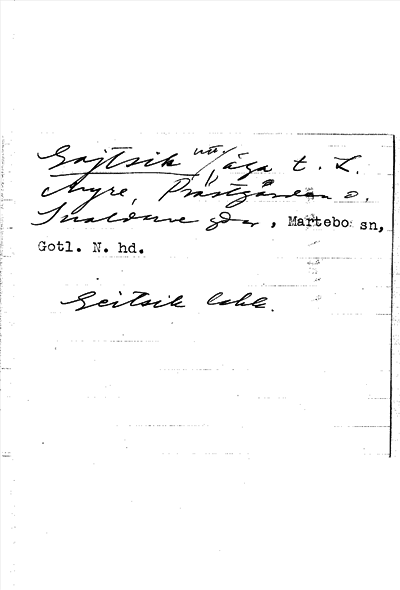 Gajtsik utt. / äga t. L.
Myre, Prästgården o.
Snaldarve gdar, Martebo sn,
Gotl. N. hd.
Geitsik lokk.